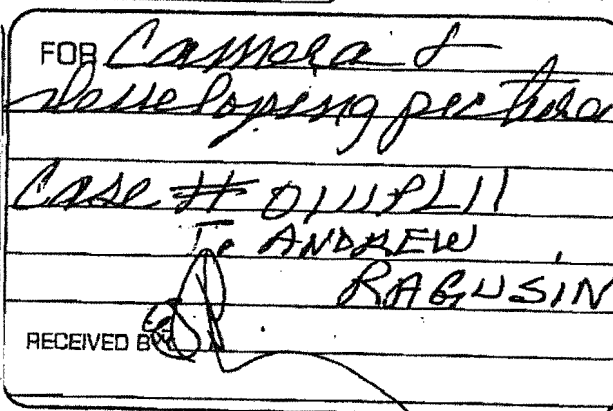 FOR Camera &
developing pictures
Case # 01111PL11
To ANDREW
RAGUSIN
RECEIVED BY